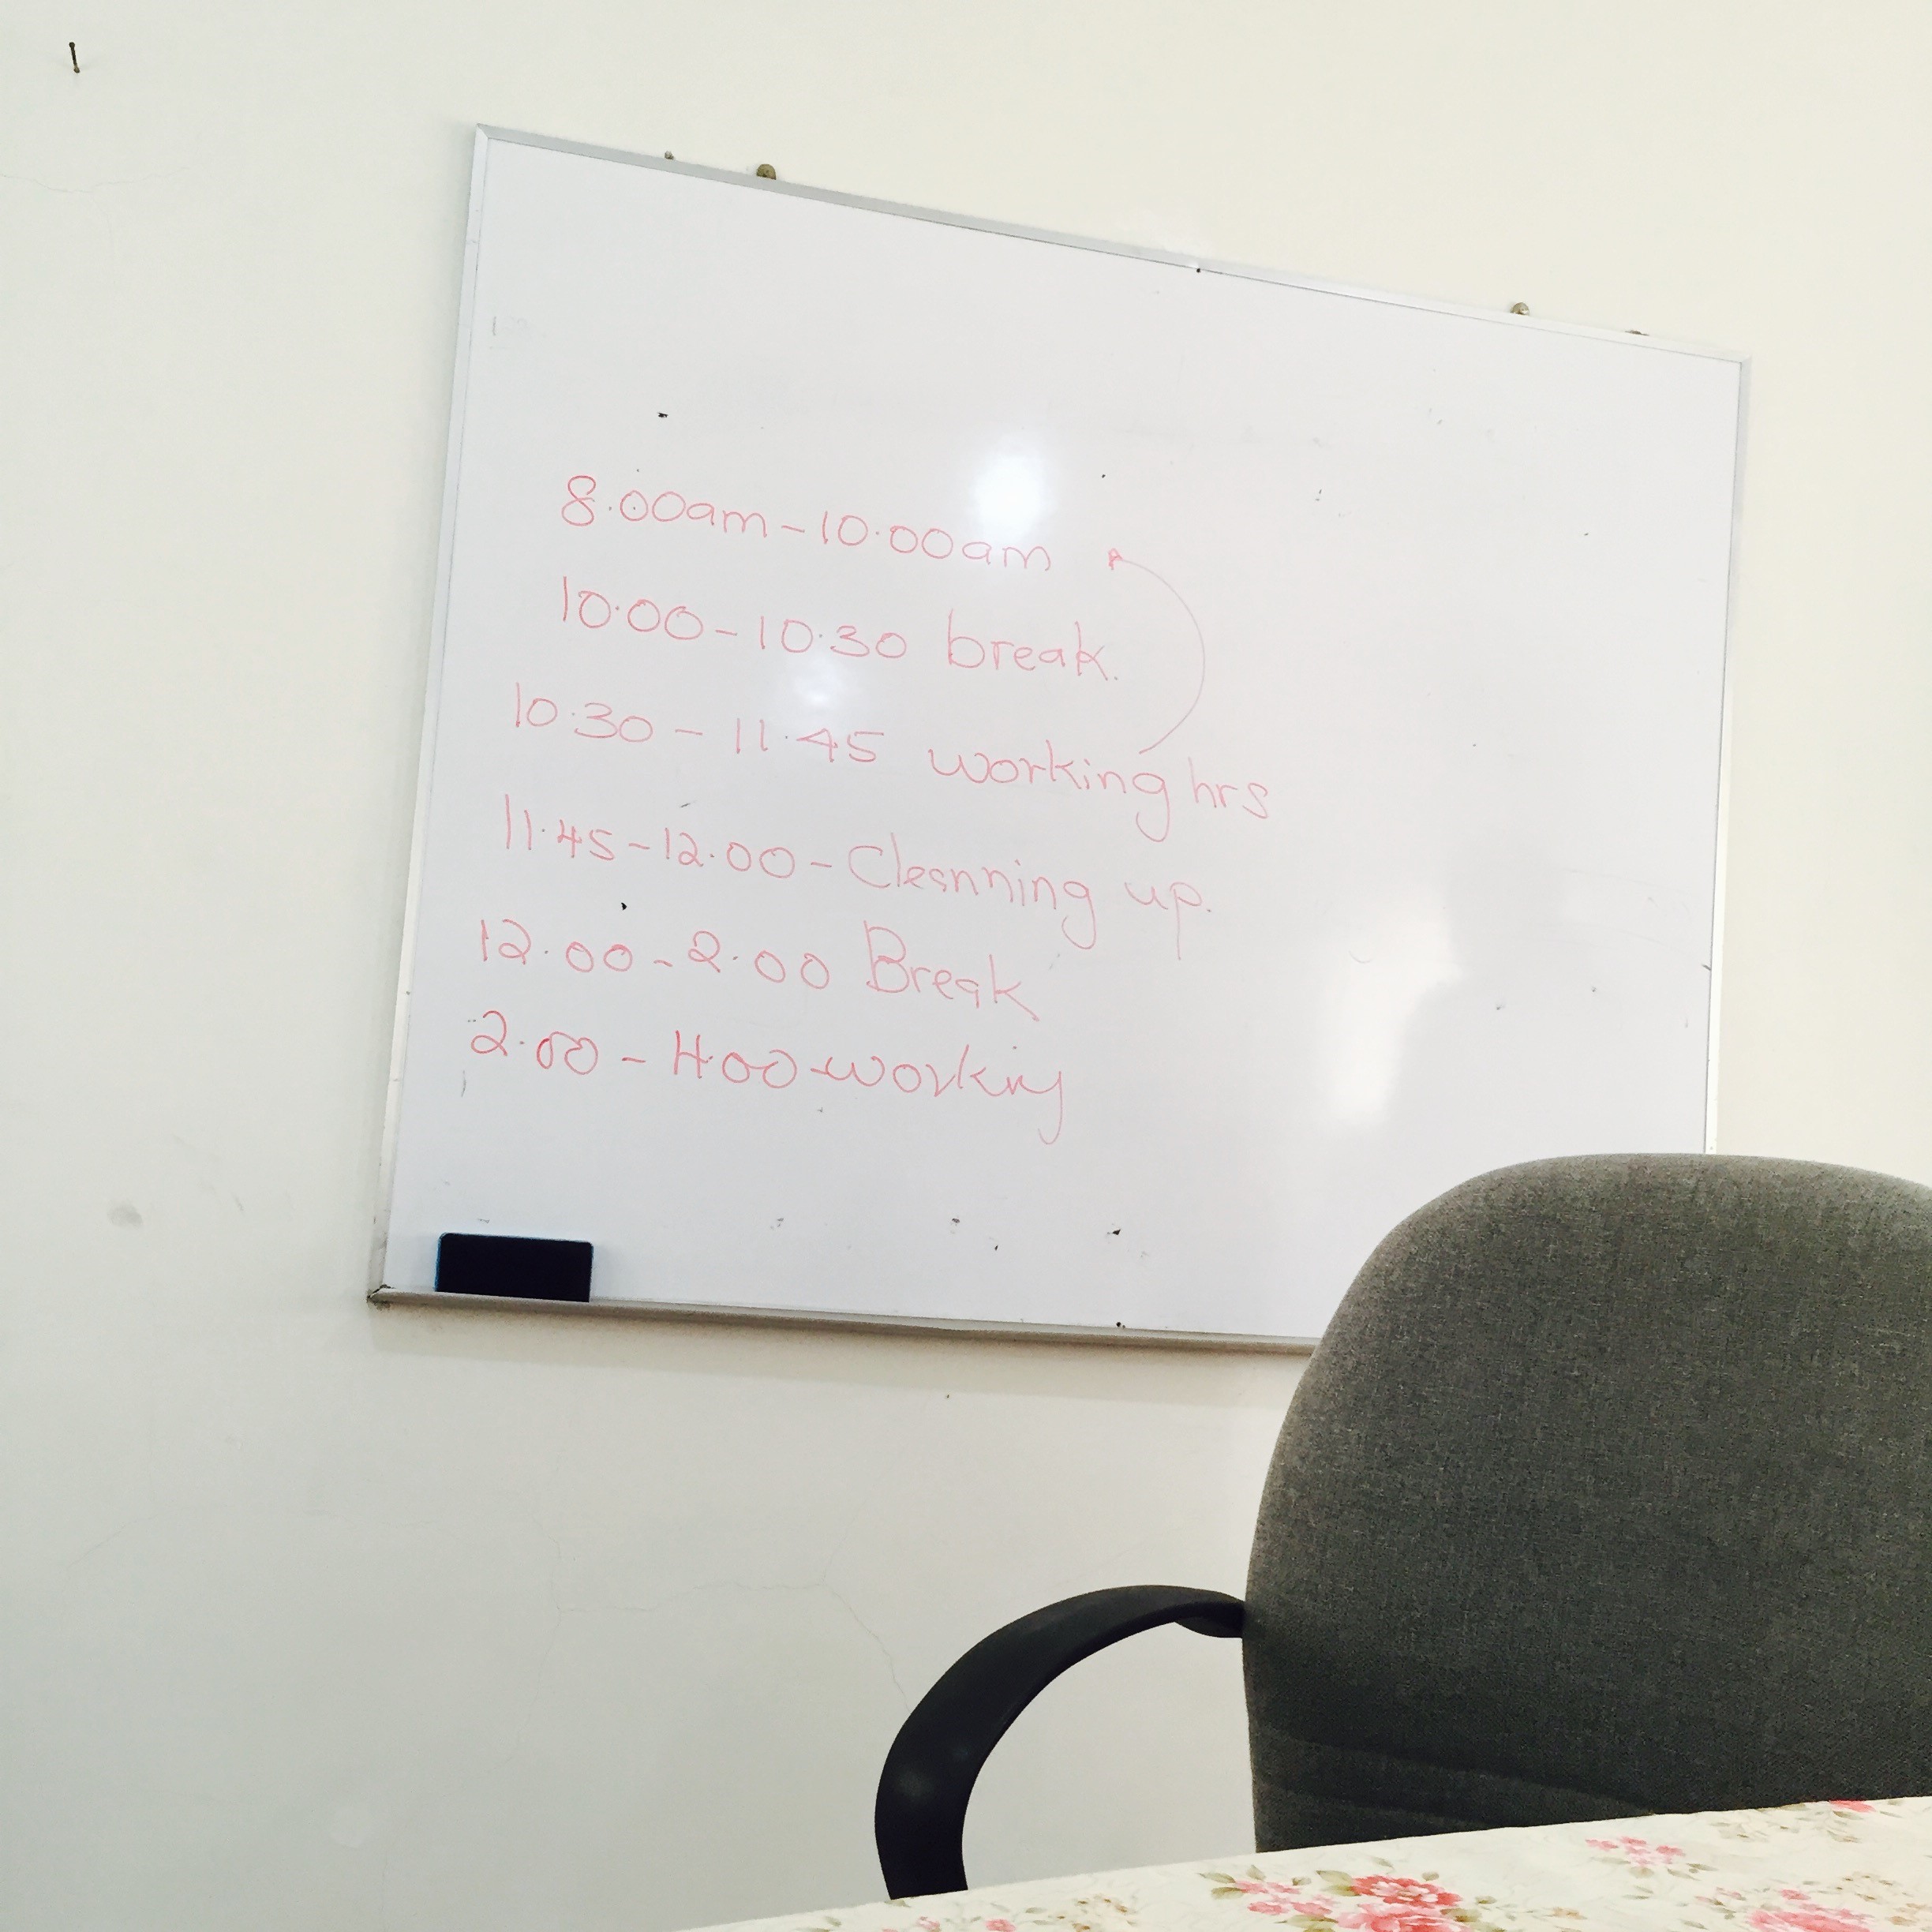 8.00am - 10.00am
10.00 - 10.30 break.
10.30 - 11.45 working hrs
11.45 - 12.00 - Cleanning up.
12.00 - 2.00 Break
2.00 - 4.00 - working